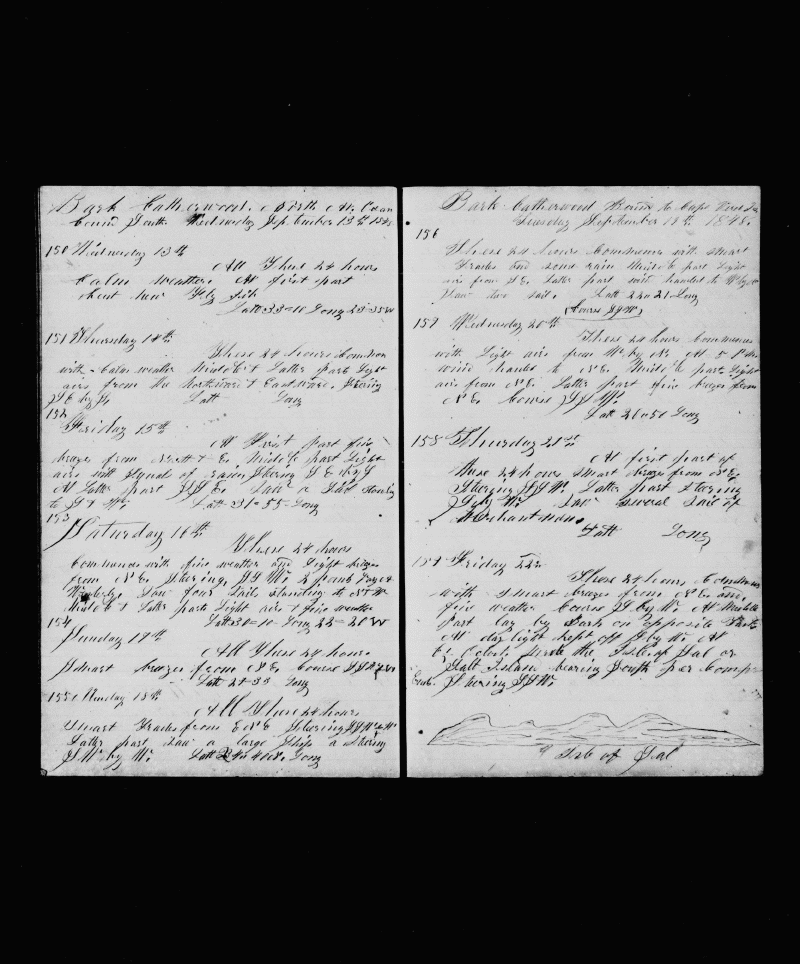 Bark Catherwood. North At. Ocean
bound South Wednesday September 13th 1848
150 Wednesday 13th
All These 24 hours
Calm weather. At first part
Latt 33-10 Long 23-35 W
151 Thursday 14th
These 24 hours Common
with Calm weather Middle & Latter part Light
airs from the Northward & Eastward. Stering
S E by S. Latt Long
152
Friday 15th
At First part fine
breezes from North & E. Middle part Light
airs with Squals of rain Stering S E by S
At Latter part S S E. Saw a Sail standing
to S & W. Latt 31-55 Long
153
Saturday 16th
These 24 hours
Commences with fine weather and Light breezes
from N E Stering, S S W.
Saw four Sails standing to N W
Middle & Latter parts Light airs & fine weather
Latt 30-10 Long 22-20 W
154
Sunday 17th
All These 24 hours
Smart breezes from N E Course S S W
Latt 27-33 Long
155 Munday 18th
All These 24 hours
Smart Trades from E N E Stering S S W & W
Latter part Saw a large Ship a Stering
S W by W. Latt Long
Bark Catherwood Bound to Cape Verd Is
Tuesday September 19th 1848.
156
These 24 hours Commences with smart
Trades and some rain Middle part Light
airs from S E. Latter part wind hauled to W by N
Saw two sail. Latt 22 = 21 Long
(Course S S W)
157 Wednesday 20th
These 24 hours Commences
with Light airs from W. by N. At 5 P.M.
wind hauled to N E. Middle part Light
airs from N E. Latter part fine breezes from
N E. Course S S W.
Latt 20=50 Long
158 Thursday 21st
At first part of
these 24 hours smart breezes from N E
Stering S S W. Latter part Stering
S by W. Saw Several Sail of
Merchantmen
Latt Long
159 Friday 22nd
These 24 hours Commences
with smart breezes from N E and
fine weather Course S by W. At Middle
Part Lay by Both on opposite Tacks
At day light kept off S by W. At
Oclock made the Isle of Sal or
Salt Island bearing South per Comp
Ends. Stering S S W.
Isle of Sal